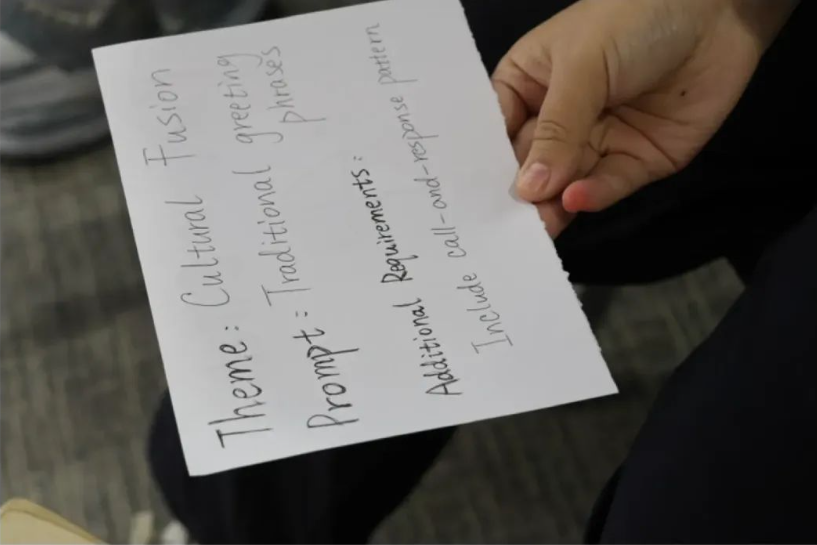 Theme: Cultural Fusion
Prompt: Traditional greeting
phrases
Additional Requirements:
Include call-and-response pattern